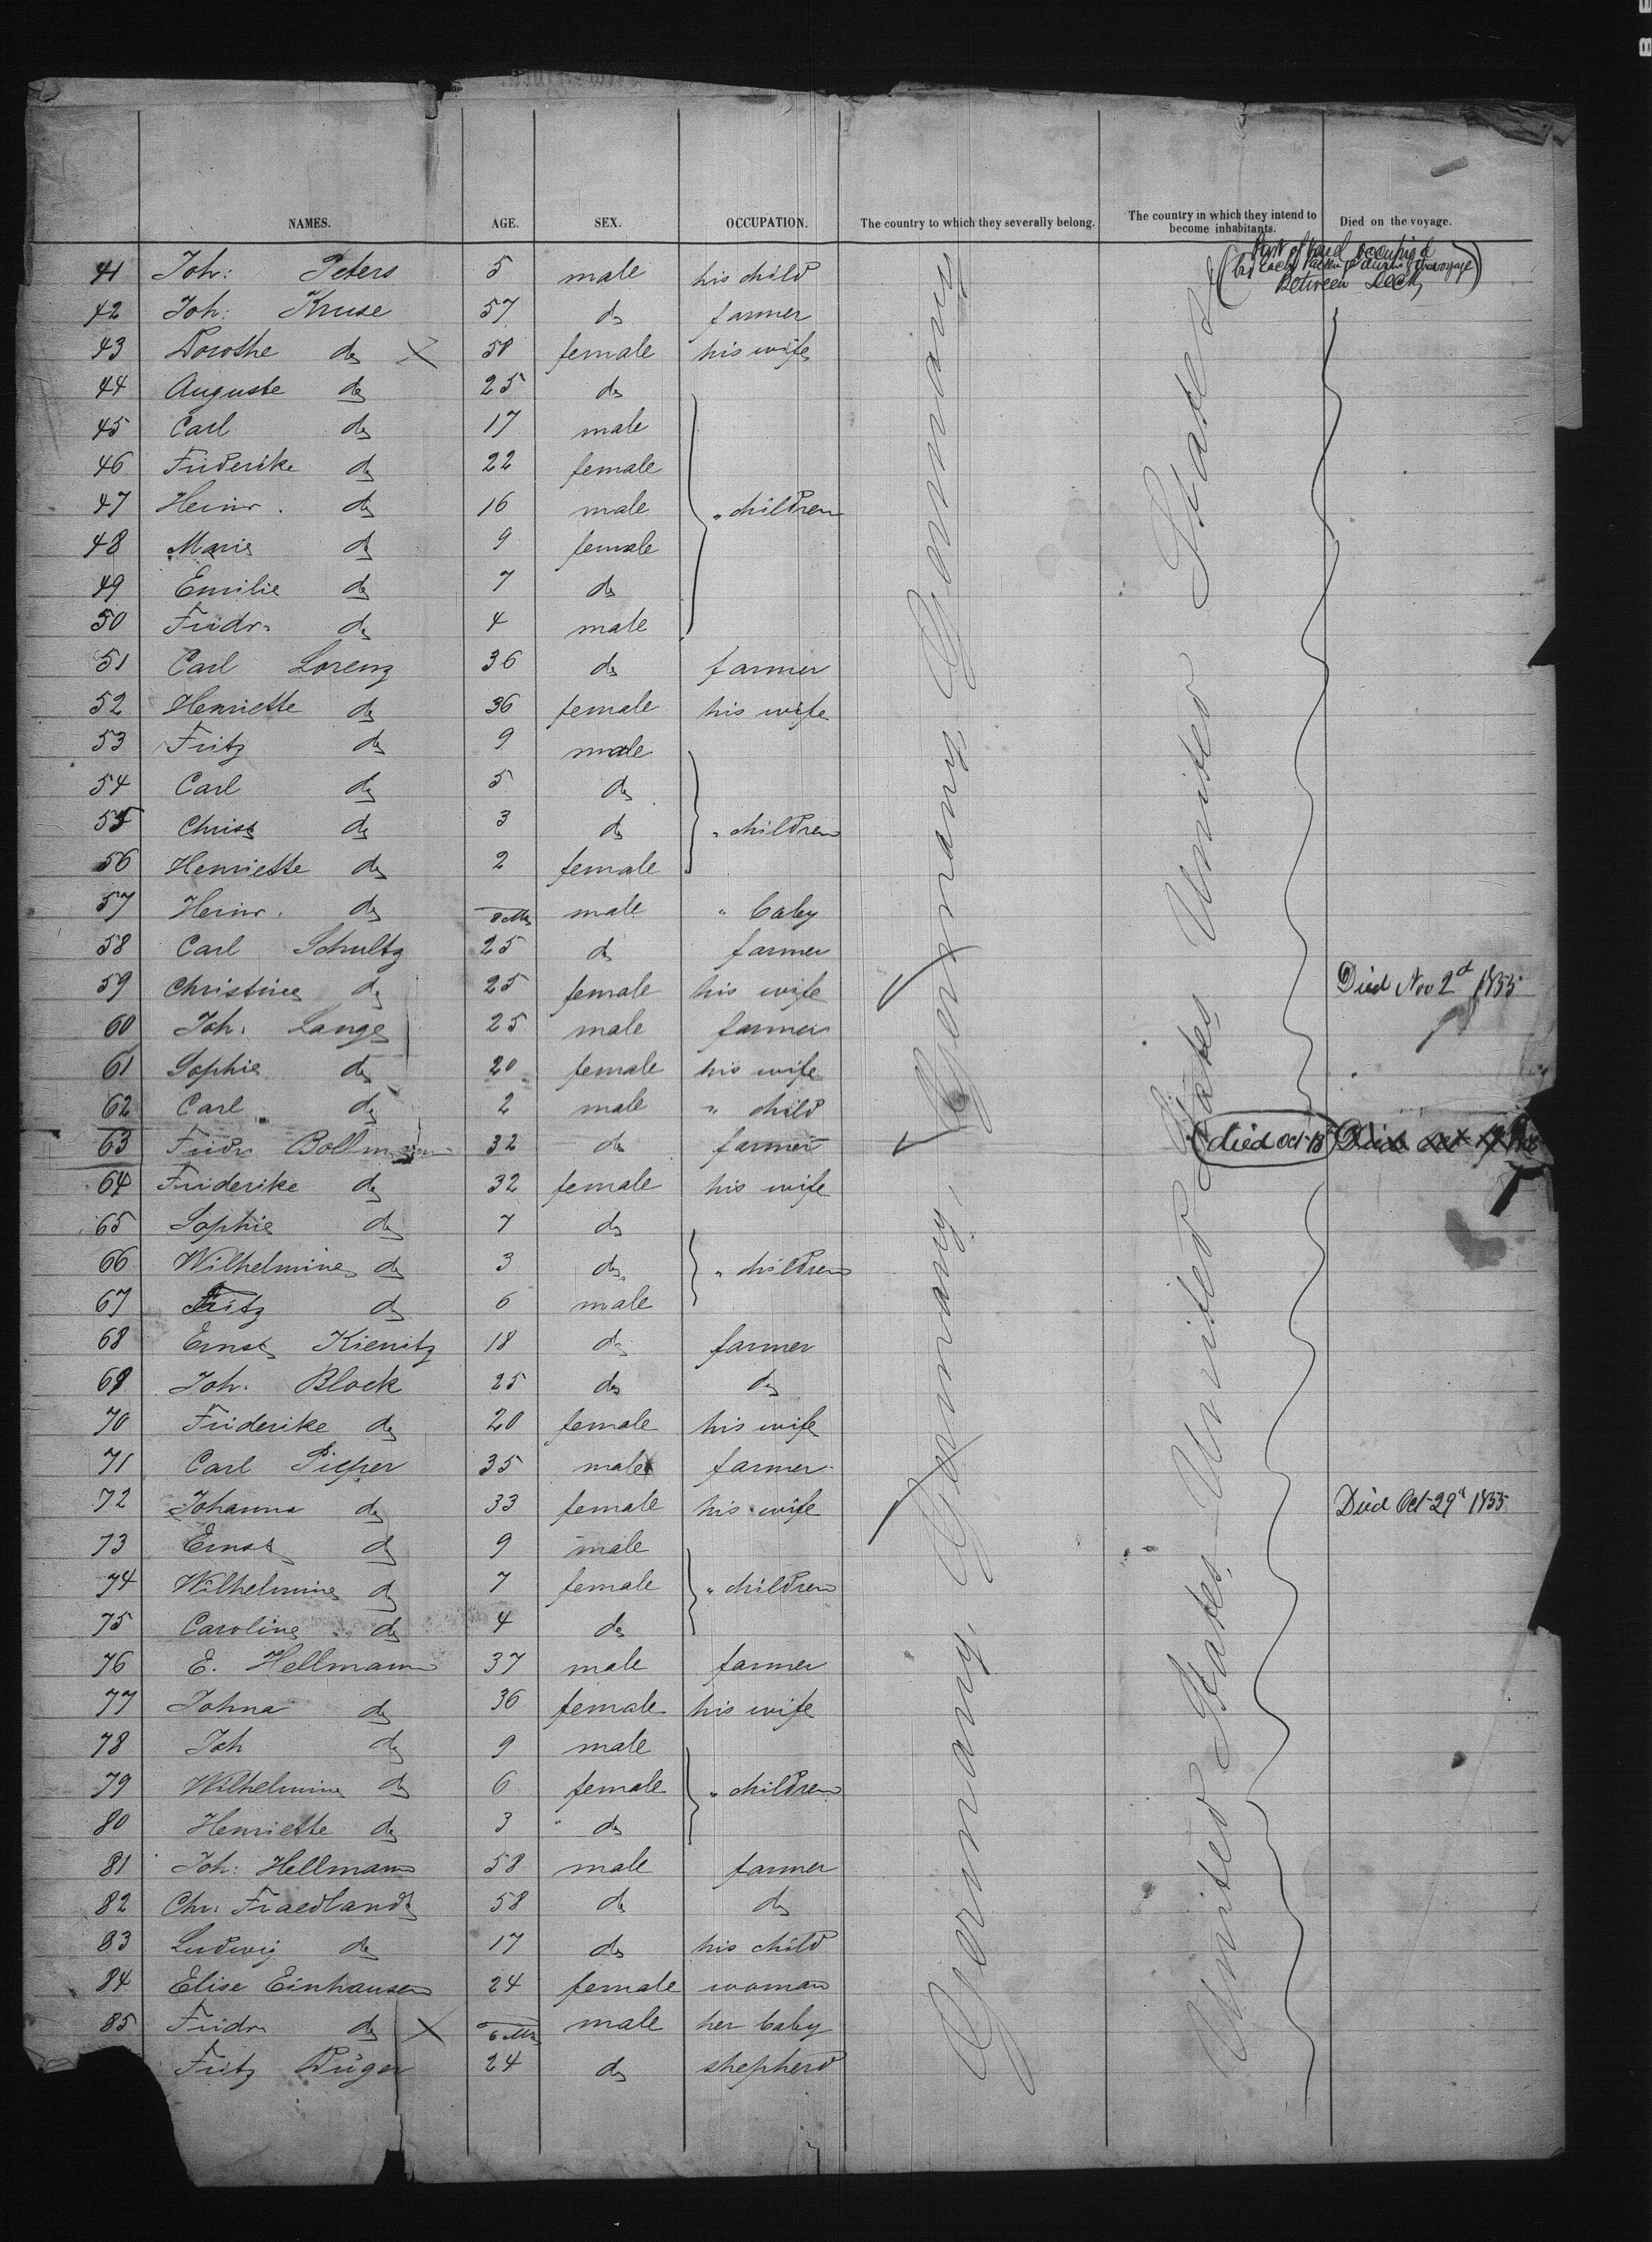 NAMES. AGE. SEX. OCCUPATION. The country to which they severally belong. The country in which they intend to become inhabitants. Died on the voyage.
(Part of vessel occupied by each passenger during the voyage Between Deck)
41 Joh: Peters 5 male his child
42 Joh: Kruse 57 do farmer
43 Dorothe do X 58 female his wife
44 Auguste do 25 do
45 Carl do 17 male
46 Friderike do 22 female
47 Heinr. do 16 male " children
48 Marie do 9 female
49 Emilie do 7 do
50 Fridr. do 4 male
51 Carl Lorenz 36 do farmer
52 Henriette do 36 female his wife
53 Fritz do 9 male
54 Carl do 5 do
55 Christ do 3 do " children
56 Henriette do 2 female
57 Heinr. do 8 Mts male " baby
58 Carl Schultz 25 do farmer
59 Christine do 25 female his wife Died Nov 2d 1855
60 Joh. Lange 25 male farmer
61 Sophie do 20 female his wife
62 Carl do 2 male " child
63 Fridr Bollmann 32 do farmer died Oct 18 Died Oct
64 Friderike do 32 female his wife
65 Sophie do 7 do
66 Wilhelmine do 3 do " children
67 Fritz do 6 male
68 Ernst Kienitz 18 do farmer
69 Joh. Block 25 do do
70 Friderike do 20 female his wife
71 Carl Pieper 35 male farmer
72 Johanna do 33 female his wife Died Oct 29th 1855
73 Ernst do 9 male
74 Wilhelmine do 7 female " children
75 Caroline do 4 do
76 E. Hellmann 37 male farmer
77 Johna do 36 female his wife
78 Joh do 9 male
79 Wilhelmine do 6 female " children
80 Henriette do 3 do
81 Joh: Hellmann 58 male farmer
82 Chr. Fraedlandt 58 do do
83 Ludwig do 17 do his child
84 Elise Einhausen 24 female woman
85 Fridr do X 6 Mts male her baby
Fritz Düger 24 do shepherd
Germany, Germany, Germany Germany
United States, United States United States